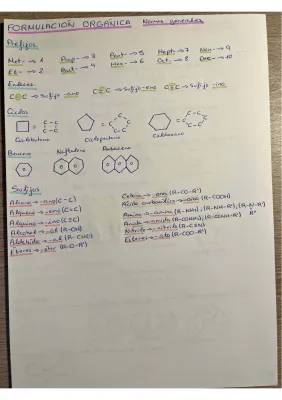 FORMULACIÓN ORGÁNICA Normas generales
Prefijos
Met- → 1 Prop- → 3 Pent- → 5 Hept- → 7 Non- → 9
Et- → 2 But- → 4 Hex- → 6 Oct- → 8 Dec- → 10
Enlaces
C-C → Sufijo -ano C=C → Sufijo -eno C≡C → Sufijo -ino
Ciclos
Ciclobutano Ciclopentano Ciclohexano
Benceno Naftaleno
Sufijos
Alcano → -ano (C-C)
Alqueno → -eno (C=C)
Alquino → -ino (C≡C)
Alcohol → -ol (R-OH)
Aldehído → -al (R-CHO)
Éteres → -éter (R-O-R')
Cetona → -ona (R-CO-R')
Ácido carboxílico → -oico (R-COOH)
Amina → -amina (R-NH₂), (R-NH-R'), (R-N-R')
R''
Nitrilo → -nitrilo (R-C≡N)
Ésteres → -ato (R-COO-R')